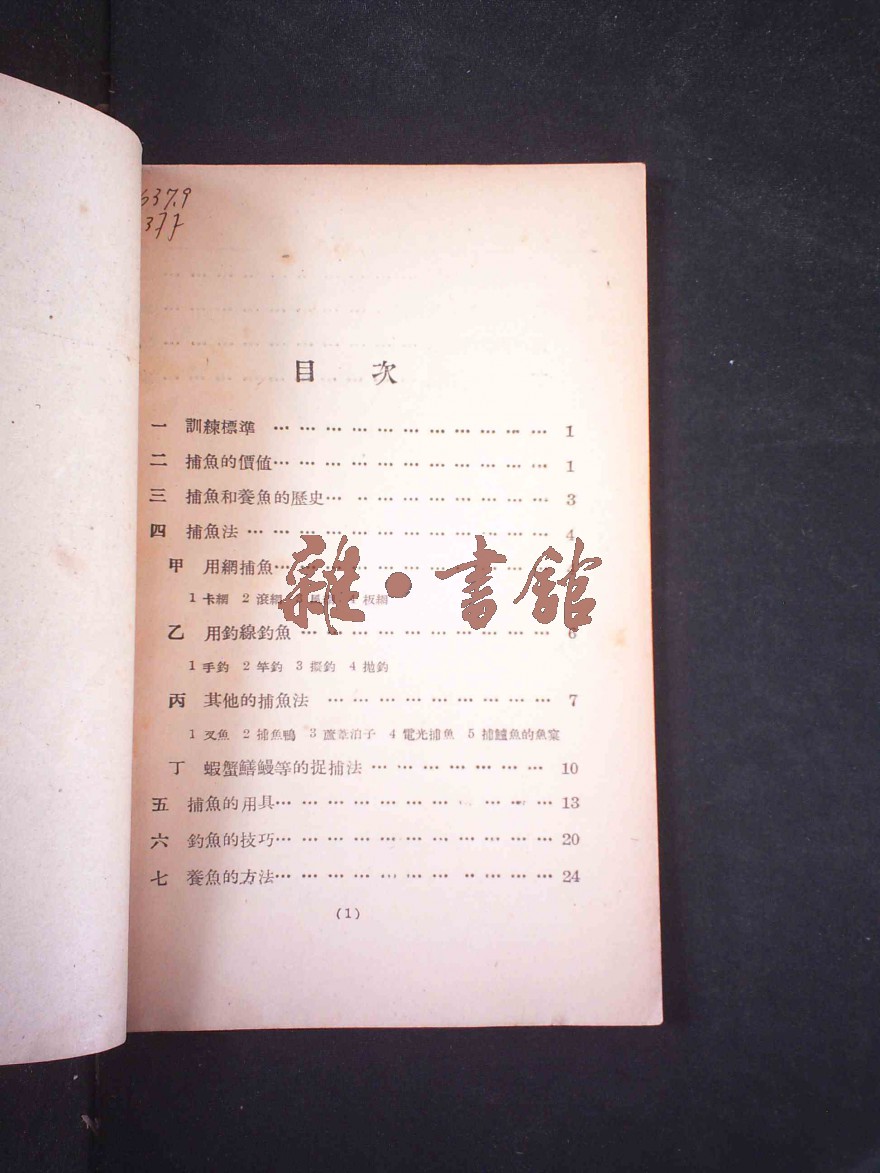 637.9
目　次
一　訓練標準 … … … … … … … … … … … 1
二　捕魚的價值… … … … … … … … … … … 1
三　捕魚和養魚的歷史… … … … … … … … … 3
四　捕魚法 … … … … … … … … … … … … 4
甲　用網捕魚… … … … … … … … … … …
1 卡網　2 滾網　3　4 板網
乙　用釣線釣魚 … … … … … … … … … … 6
1 手釣　2 竿釣　3 擺釣　4 拋釣
丙　其他的捕魚法 … … … … … … … … … 7
1 叉魚　2 捕魚鴨　3 蘆葦泊子　4 電光捕魚　5 捕鱸魚的魚窠
丁　蝦蟹鱔鰻等的捉捕法 … … … … … … … 10
五　捕魚的用具… … … … … … … … … … … 13
六　釣魚的技巧… … … … … … … … … … … 20
七　養魚的方法… … … … … … … … … … … 24
(1)
雜·書館